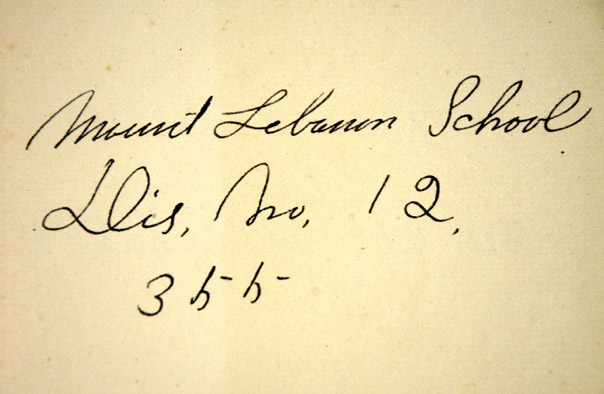 Mount Lebanon School
Dis, No, 12,
355